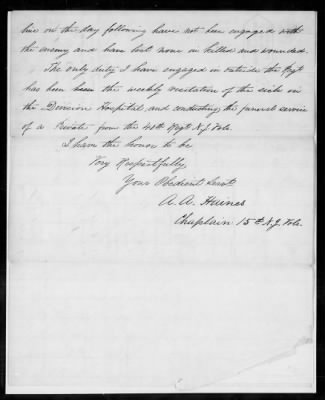 line on the day following have not been engaged with
the enemy and have lost none in killed and wounded.
The only duty I have engaged in outside the Regt
has been the weekly visitation of the sick in
the Division Hospital, and conducting the funeral service
of a Private from the 40th Regt N.J. Vols.
I have the honor to be
Very Respectfully
Your Obedient Servt
A. A. Haines
Chaplain 15th N.J. Vols.